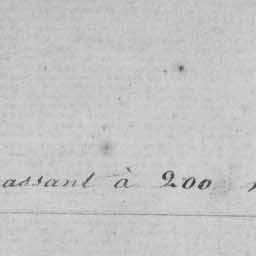 assant à 200